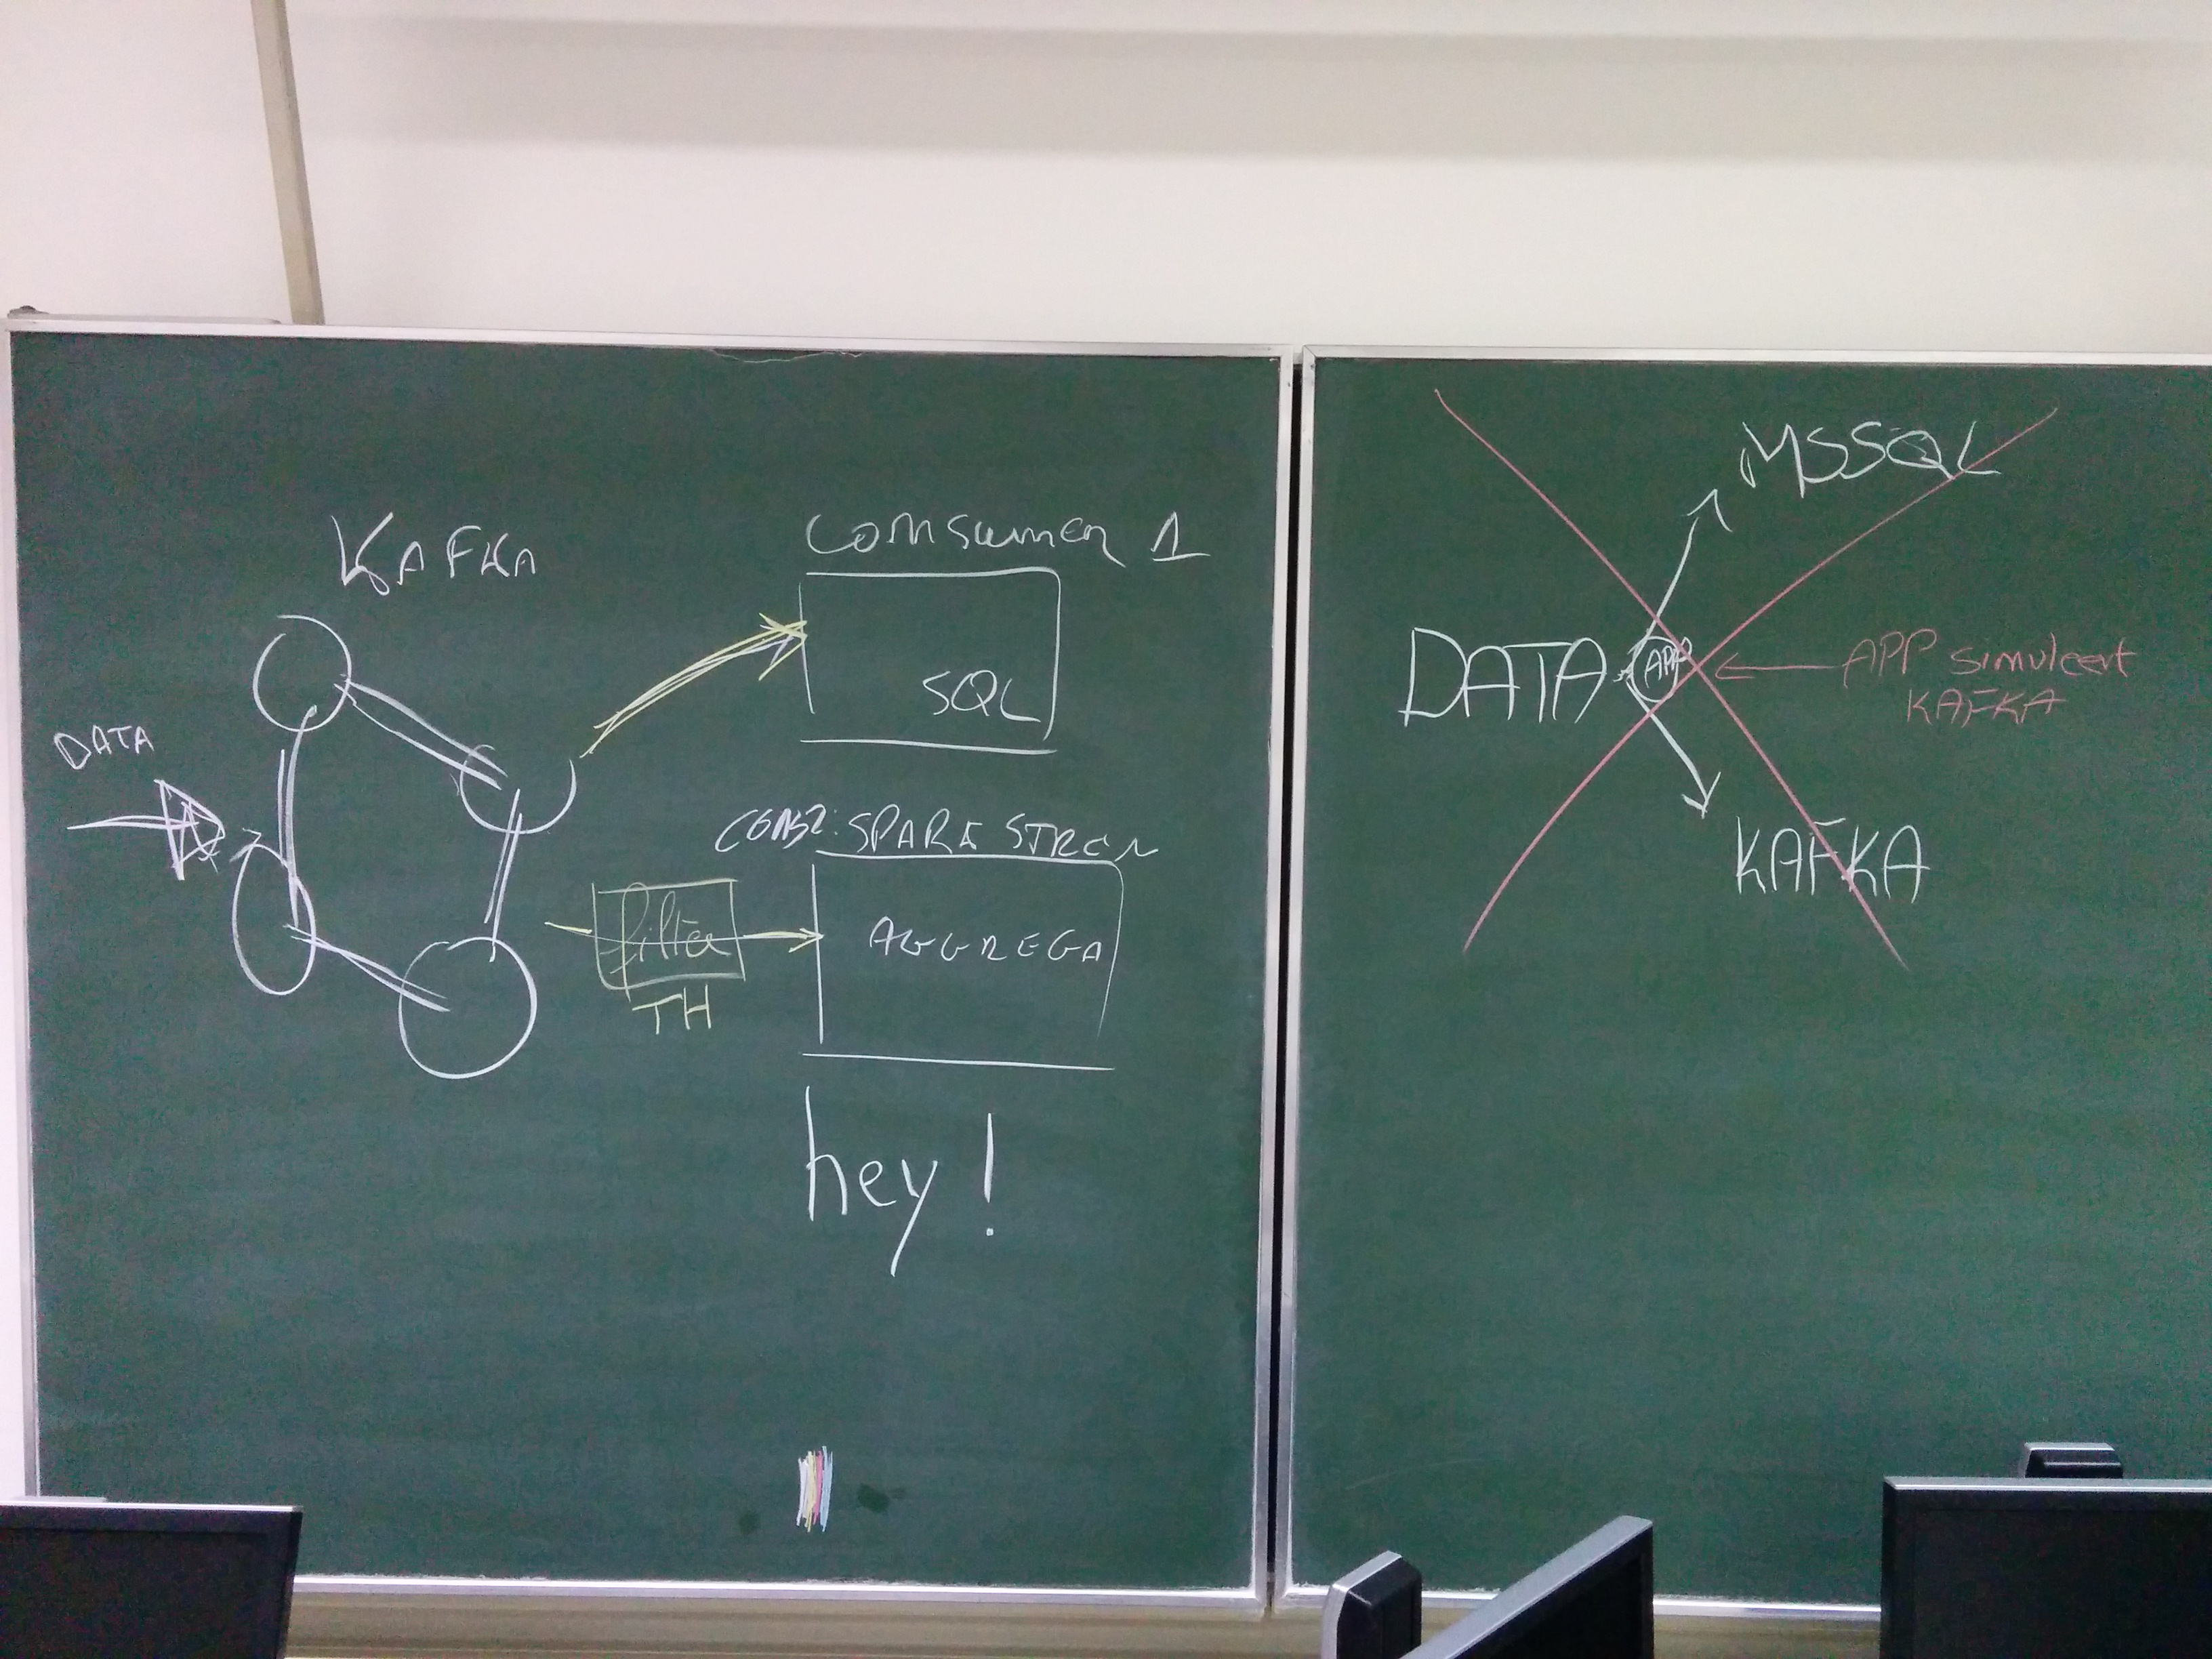 KAFKA
DATA
Consumer 1
SQL
CONS2: SPARK STREA
filter
TH
AGGREGA
hey!
MSSQL
DATA
APP
APP simuleert
KAFKA
KAFKA